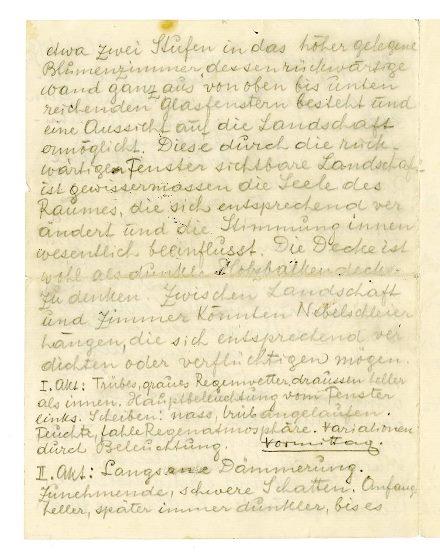 etwa zwei Stufen in das höher gelegene
Blumenzimmer, dessen rückwärtige
wand ganz aus von oben bis unten
reichenden Glasfenstern besteht und
eine Aussicht auf die Landschaft
ermöglicht. Diese durch die rück-
wärtigen Fenster sichtbare Landschaft
ist gewissermassen die Seele des
Raumes, die sich entsprechend ver
ändert und die Stimmung innen
wesentlich beeinflusst. Die Decke ist
wohl als dunkle Holzbalkendecke
zu denken. Zwischen Landschaft
und Zimmer könnten Nebelschleier
hängen, die sich entsprechend ver
dichten oder verflüchtigen mögen.
I. Akt: Trübes, graues Regenwetter, draussen heller
als innen. Hauptbeleuchtung vom Fenster
links. Scheiben: nass, trüb angelaufen.
Feuchte, fahle Regenatmosphäre. Variationen
durch Beleuchtung. Vormittag.
II. Akt: Langsame Dämmerung.
Zunehmende, schwere Schatten. Anfang
heller, später immer dunkler, bis es